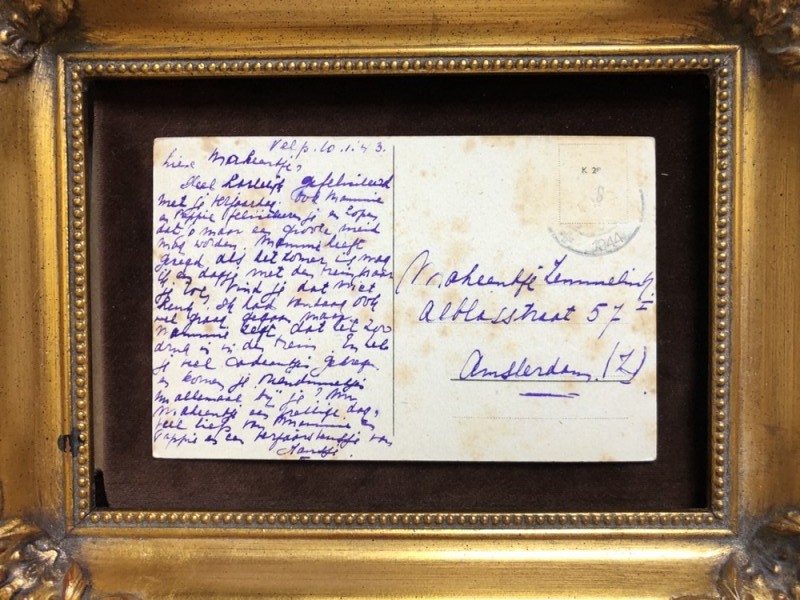 Velp. 10.1.43.
Lieve
Heel hartelijk gefeliciteerd
met je verjaardag. Ook Mammie
en Pappie feliciteren je en hopen
dat je maar een groote meid
mag worden. Mammie heeft
gezegd, als het zomer is mag
ik een dagje met den trein naar
je toe. Vind je dat niet
leuk? Ik had vandaag ook
wel graag gegaan maar
Mammie zegt dat het zoo
druk is in de trein. En heb
je veel cadeautjes gekregen
en komen je vriendinnetjes
allemaal bij je? Nu
een prettige dag,
veel liefs van Mammie en
Pappie en een verjaardagkusje van
K. 29
8
1944
Alblasstraat 57 I
Amsterdam. (Z.)